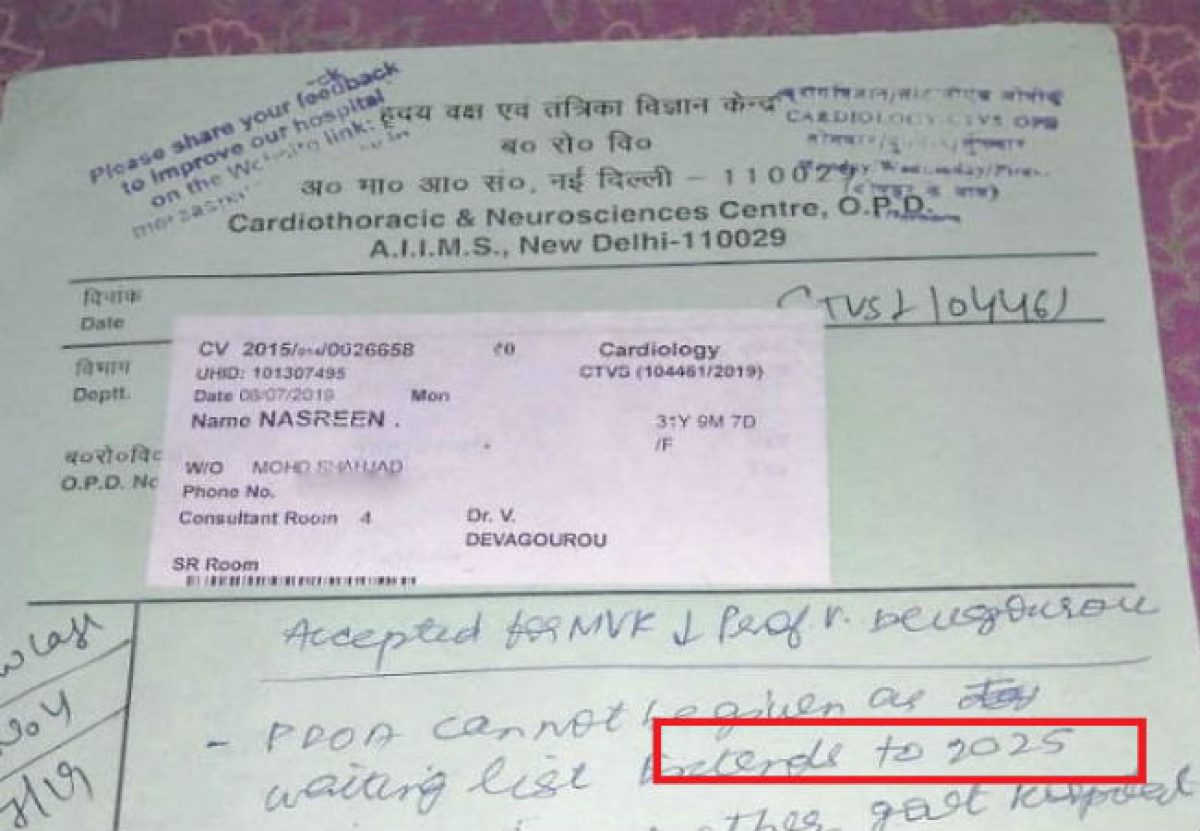 Please share your feedback
to improve our hospital
on the Website link:
हृदय वक्ष एवं तंत्रिका विज्ञान केन्द्र
ब० रो० वि०
अ० भा० आ० सं०, नई दिल्ली – 110029
Cardiothoracic & Neurosciences Centre, O.P.D.
A.I.I.M.S., New Delhi-110029
CARDIOLOGY CTVS OPD
दिनांक
Date
CTVS
विभाग
Deptt.
ब०रो०वि०
O.P.D. No
CV 2015/014/0026658 ₹0 Cardiology
UHID: 101307495 CTVS (104461/2019)
Date 08/07/2019 Mon
Name NASREEN . 31Y 9M 7D
/F
W/O MOHD SHAHJAD
Phone No.
Consultant Room 4 Dr. V.
DEVAGOUROU
SR Room
Accepted for MVR Prof V. Devgourou
- PDOA cannot be given as
waiting list extends to 2025
other govt hospital